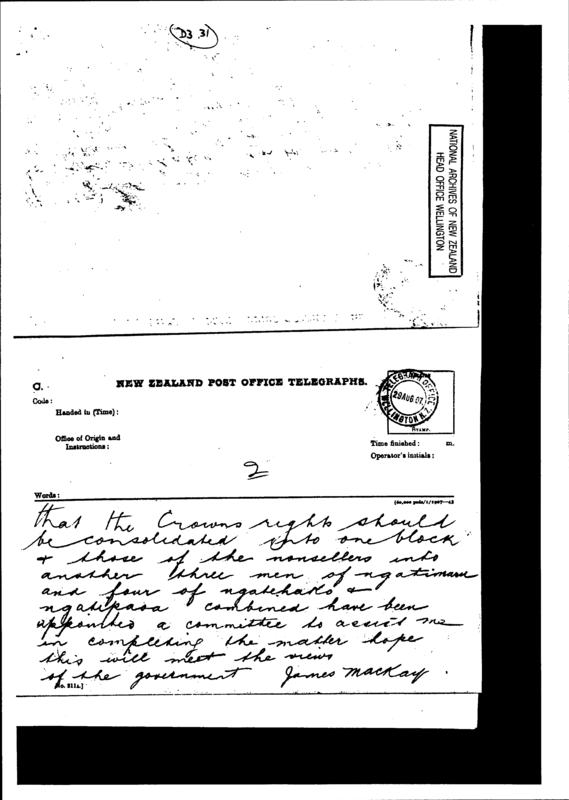 D3 31
NATIONAL ARCHIVES OF NEW ZEALAND
HEAD OFFICE WELLINGTON
NEW ZEALAND POST OFFICE TELEGRAPHS.
Code:
Handed in (Time):
Office of Origin and
Instructions:
TELEGRAPH OFFICE
29 AUG 07
WELLINGTON N.Z.
STAMP.
Time finished: m.
Operator's initials:
2
Words:
that the Crowns rights should
be consolidated into one block
& those of the nonsellers into
another three men of ngatimaru
and four of &
combined have been
appointed a committee to assist me
in completing the matter hope
this will meet the views
of the government James Mackay.